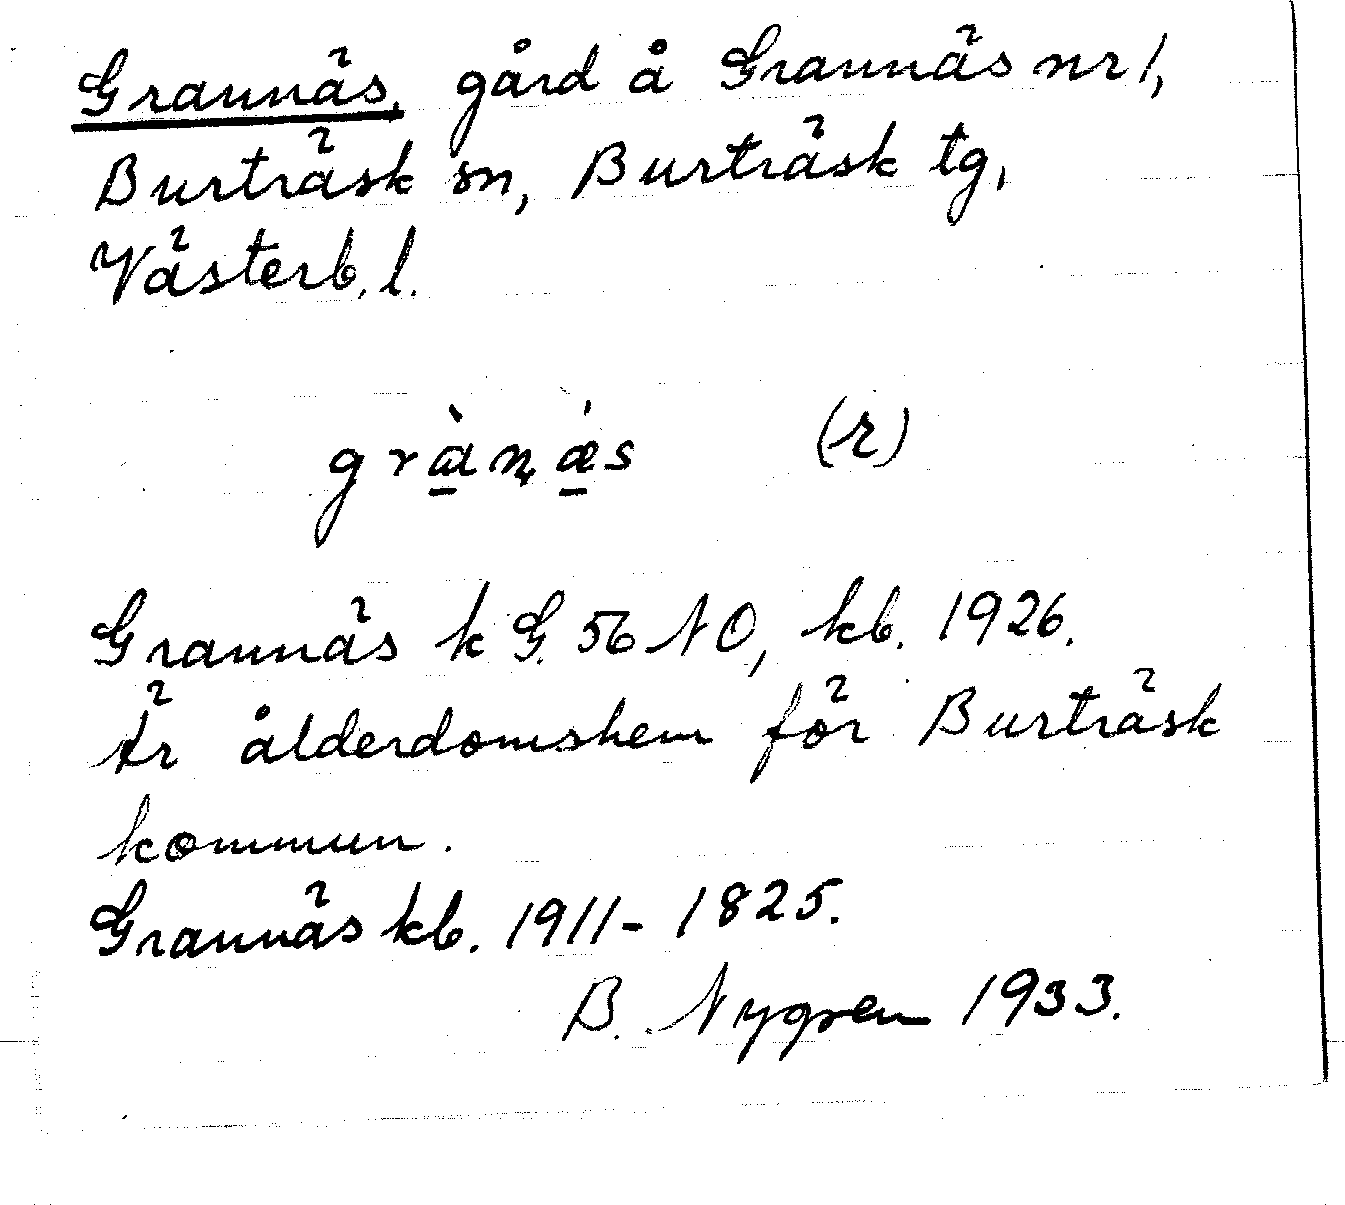 Grannäs, gård å Grannäs nr 1,
Burträsk sn, Burträsk tg,
Västerb. l.
gràn̥ǽs (r)
Grannäs k G. 56 NO, kb. 1926.
Är ålderdomshem för Burträsk
kommun.
Grannäs kb. 1911-1825.
B. Nygren 1933.